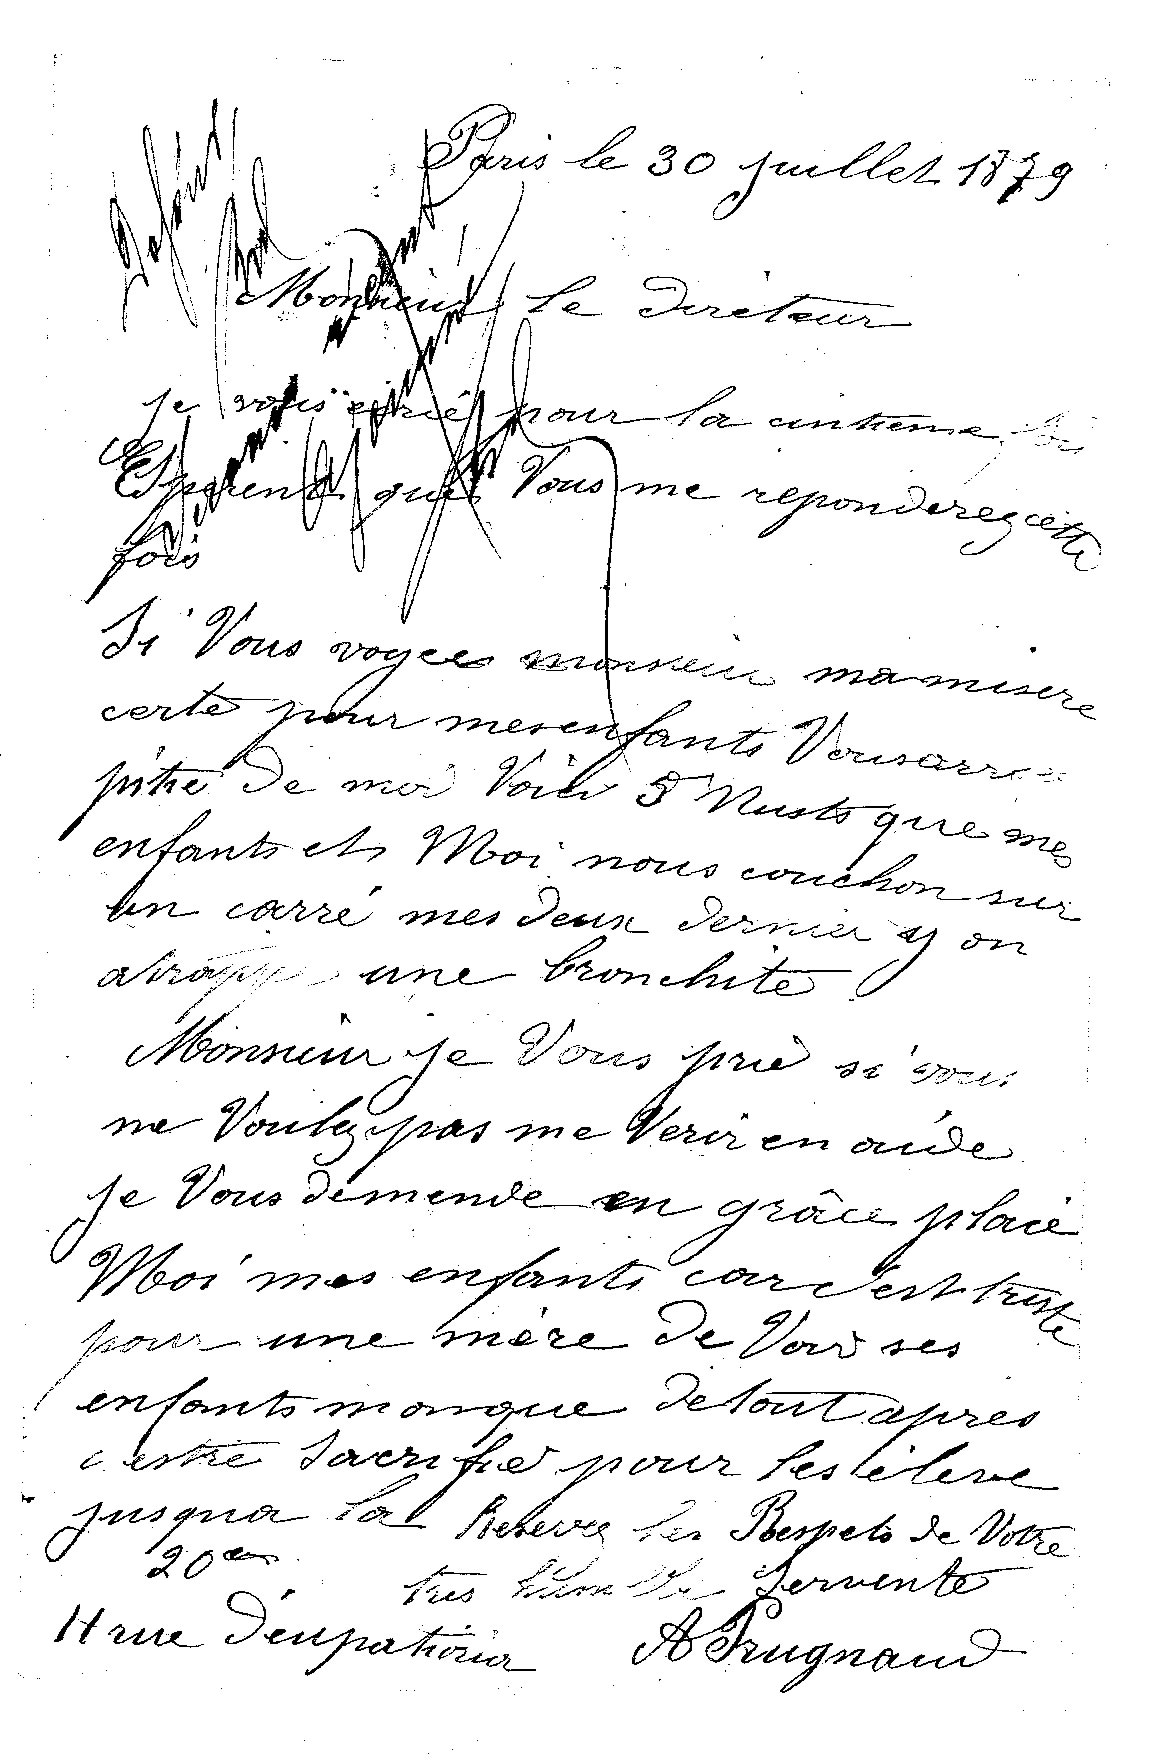 Paris le 30 juillet 1879
Monsieur le direteur
je vous ecrie pour la cintieme foi
Esperent que Vous me reponderez cette
fois
Si Vous voyees monsieur ma misere
certe pour mes enfants Vous arrez
pitie de moi Voila 3 Nuits que mes
enfants et Moi nous couchon sur
un carré mes deux dernier y on
atrapp une bronchite
Monsieur je Vous prie si vous
ne Voulez pas me Venir en aide
je Vous demende en grâce place
Moi mes enfants car c'est triste
pour une mère de Voir ses
enfants manque de tout apres
c'estre sacrifie pour les éleve
jusqua la Reserve les Respets de Votre
tres humble Servente
20em
11 rue d'eupatoria A Prugnaud